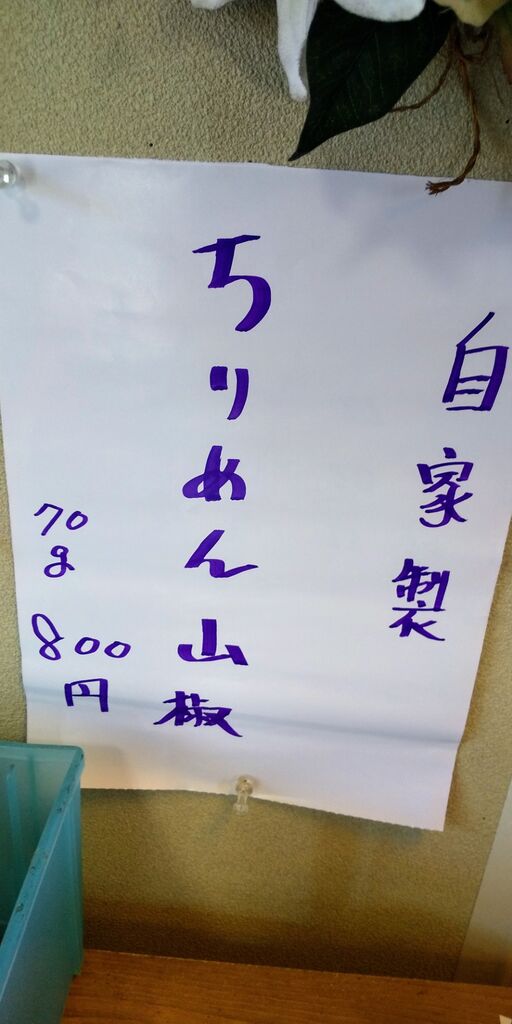 自家製
ちりめん山椒
70g 800円